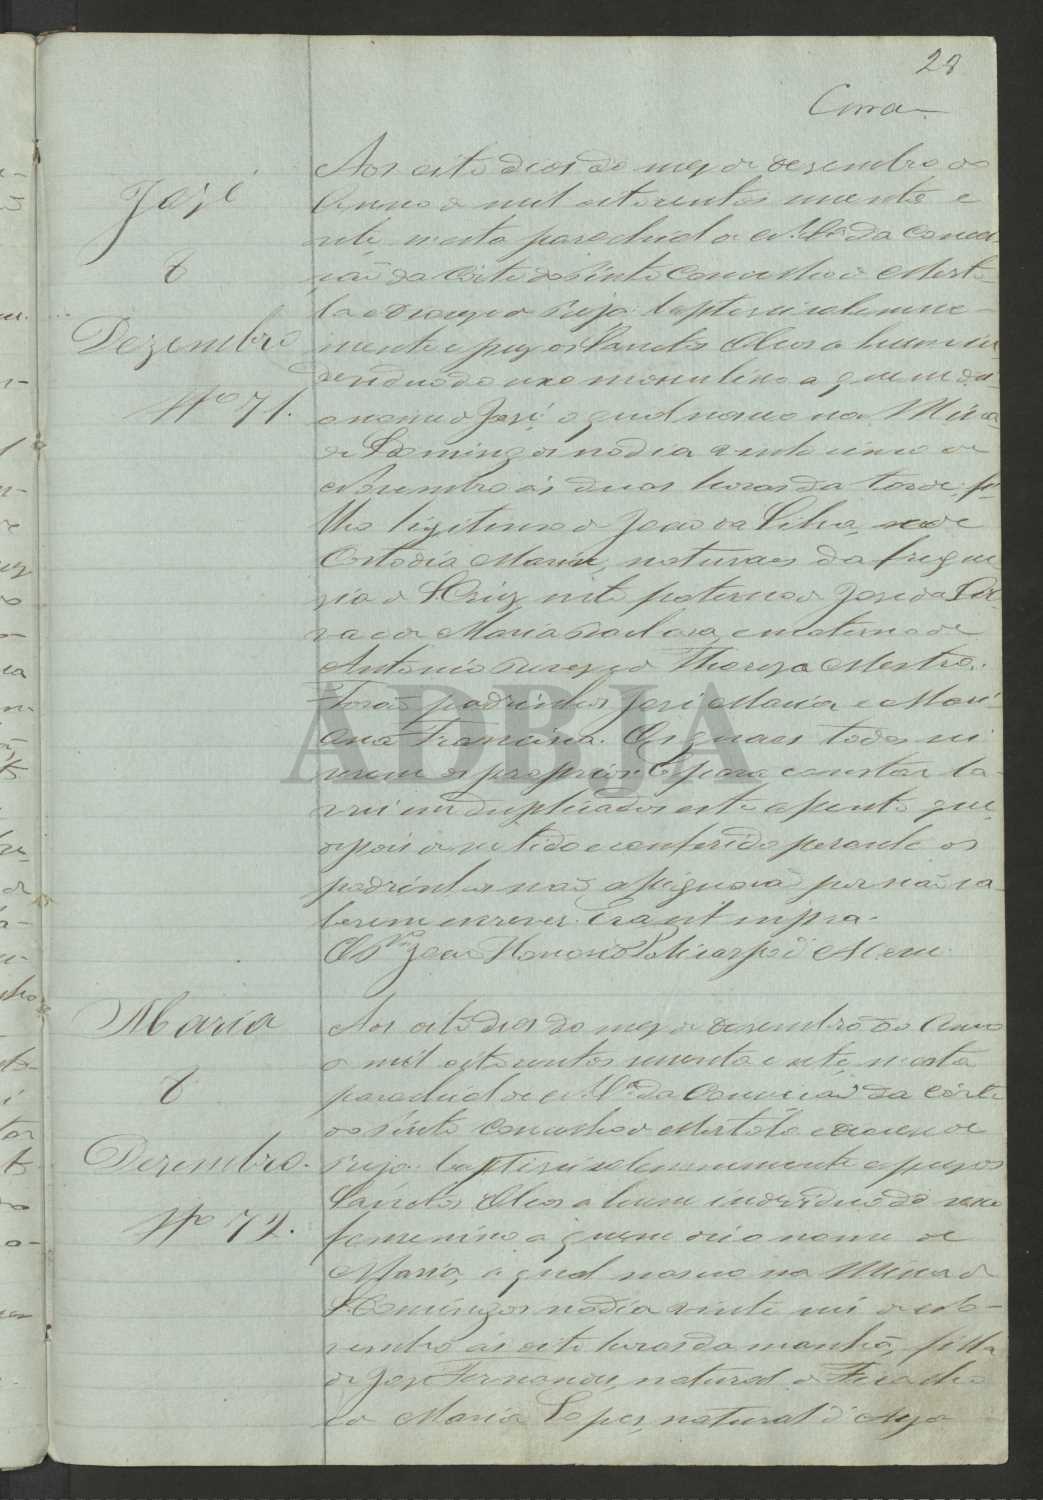 28
Corrêa
José
8
Dezembro
Nº 71.
Aos oito dias do mez de Dezembro do
Anno de mil oitocentos noventa e
sete, nesta parochial de N. Srª da Concei-
ção da Corte do Pinto Concelho de Merto-
la e Diocese de Beja: baptisei solemne-
mente e puz os Sanctos Oleos a hum in-
dividuo do sexo masculino a quem dei
o nome de José, o qual nasceo na Mina
de S. Domingos no dia vinte cinco de
Novembro ás duas horas da tarde, fi-
lho legitimo de João da Silva, e de
Custodia Maria, naturaes da fregue-
zia de S. Braz, neto paterno de José da Sil-
va e de Maria e materno de
Antonio e de Thereza Mestre.
Forão padrinhos José Maria e Mari-
anna Francisca. Os quaes todos sei
serem os proprios. E para constar la-
vrei em duplicado este assento que
depois de ser lido e conferido perante os
padrinhos não assignarão por não sa-
berem escrever. Era ut supra.
O Pr João Honorio Policarpo d'
Maria
8
Dezembro.
Nº 72.
Aos oito dias do mez de Dezembro do Anno
de mil oitocentos noventa e sete, nesta
parochial de N. Srª da Conceição da Corte
do Pinto Concelho de Mertola e Diocese de
Beja: baptisei solemnemente e puz os
Sanctos Oleos a hum individuo do sexo
femenino a quem dei o nome de
Maria, a qual nasceo na Mina de
S. Domingos no dia vinte seis de No-
vembro ás oito horas da manhã, filha
de José Fernandes, natural de
e de Maria Lopes, natural d'
ADBJA